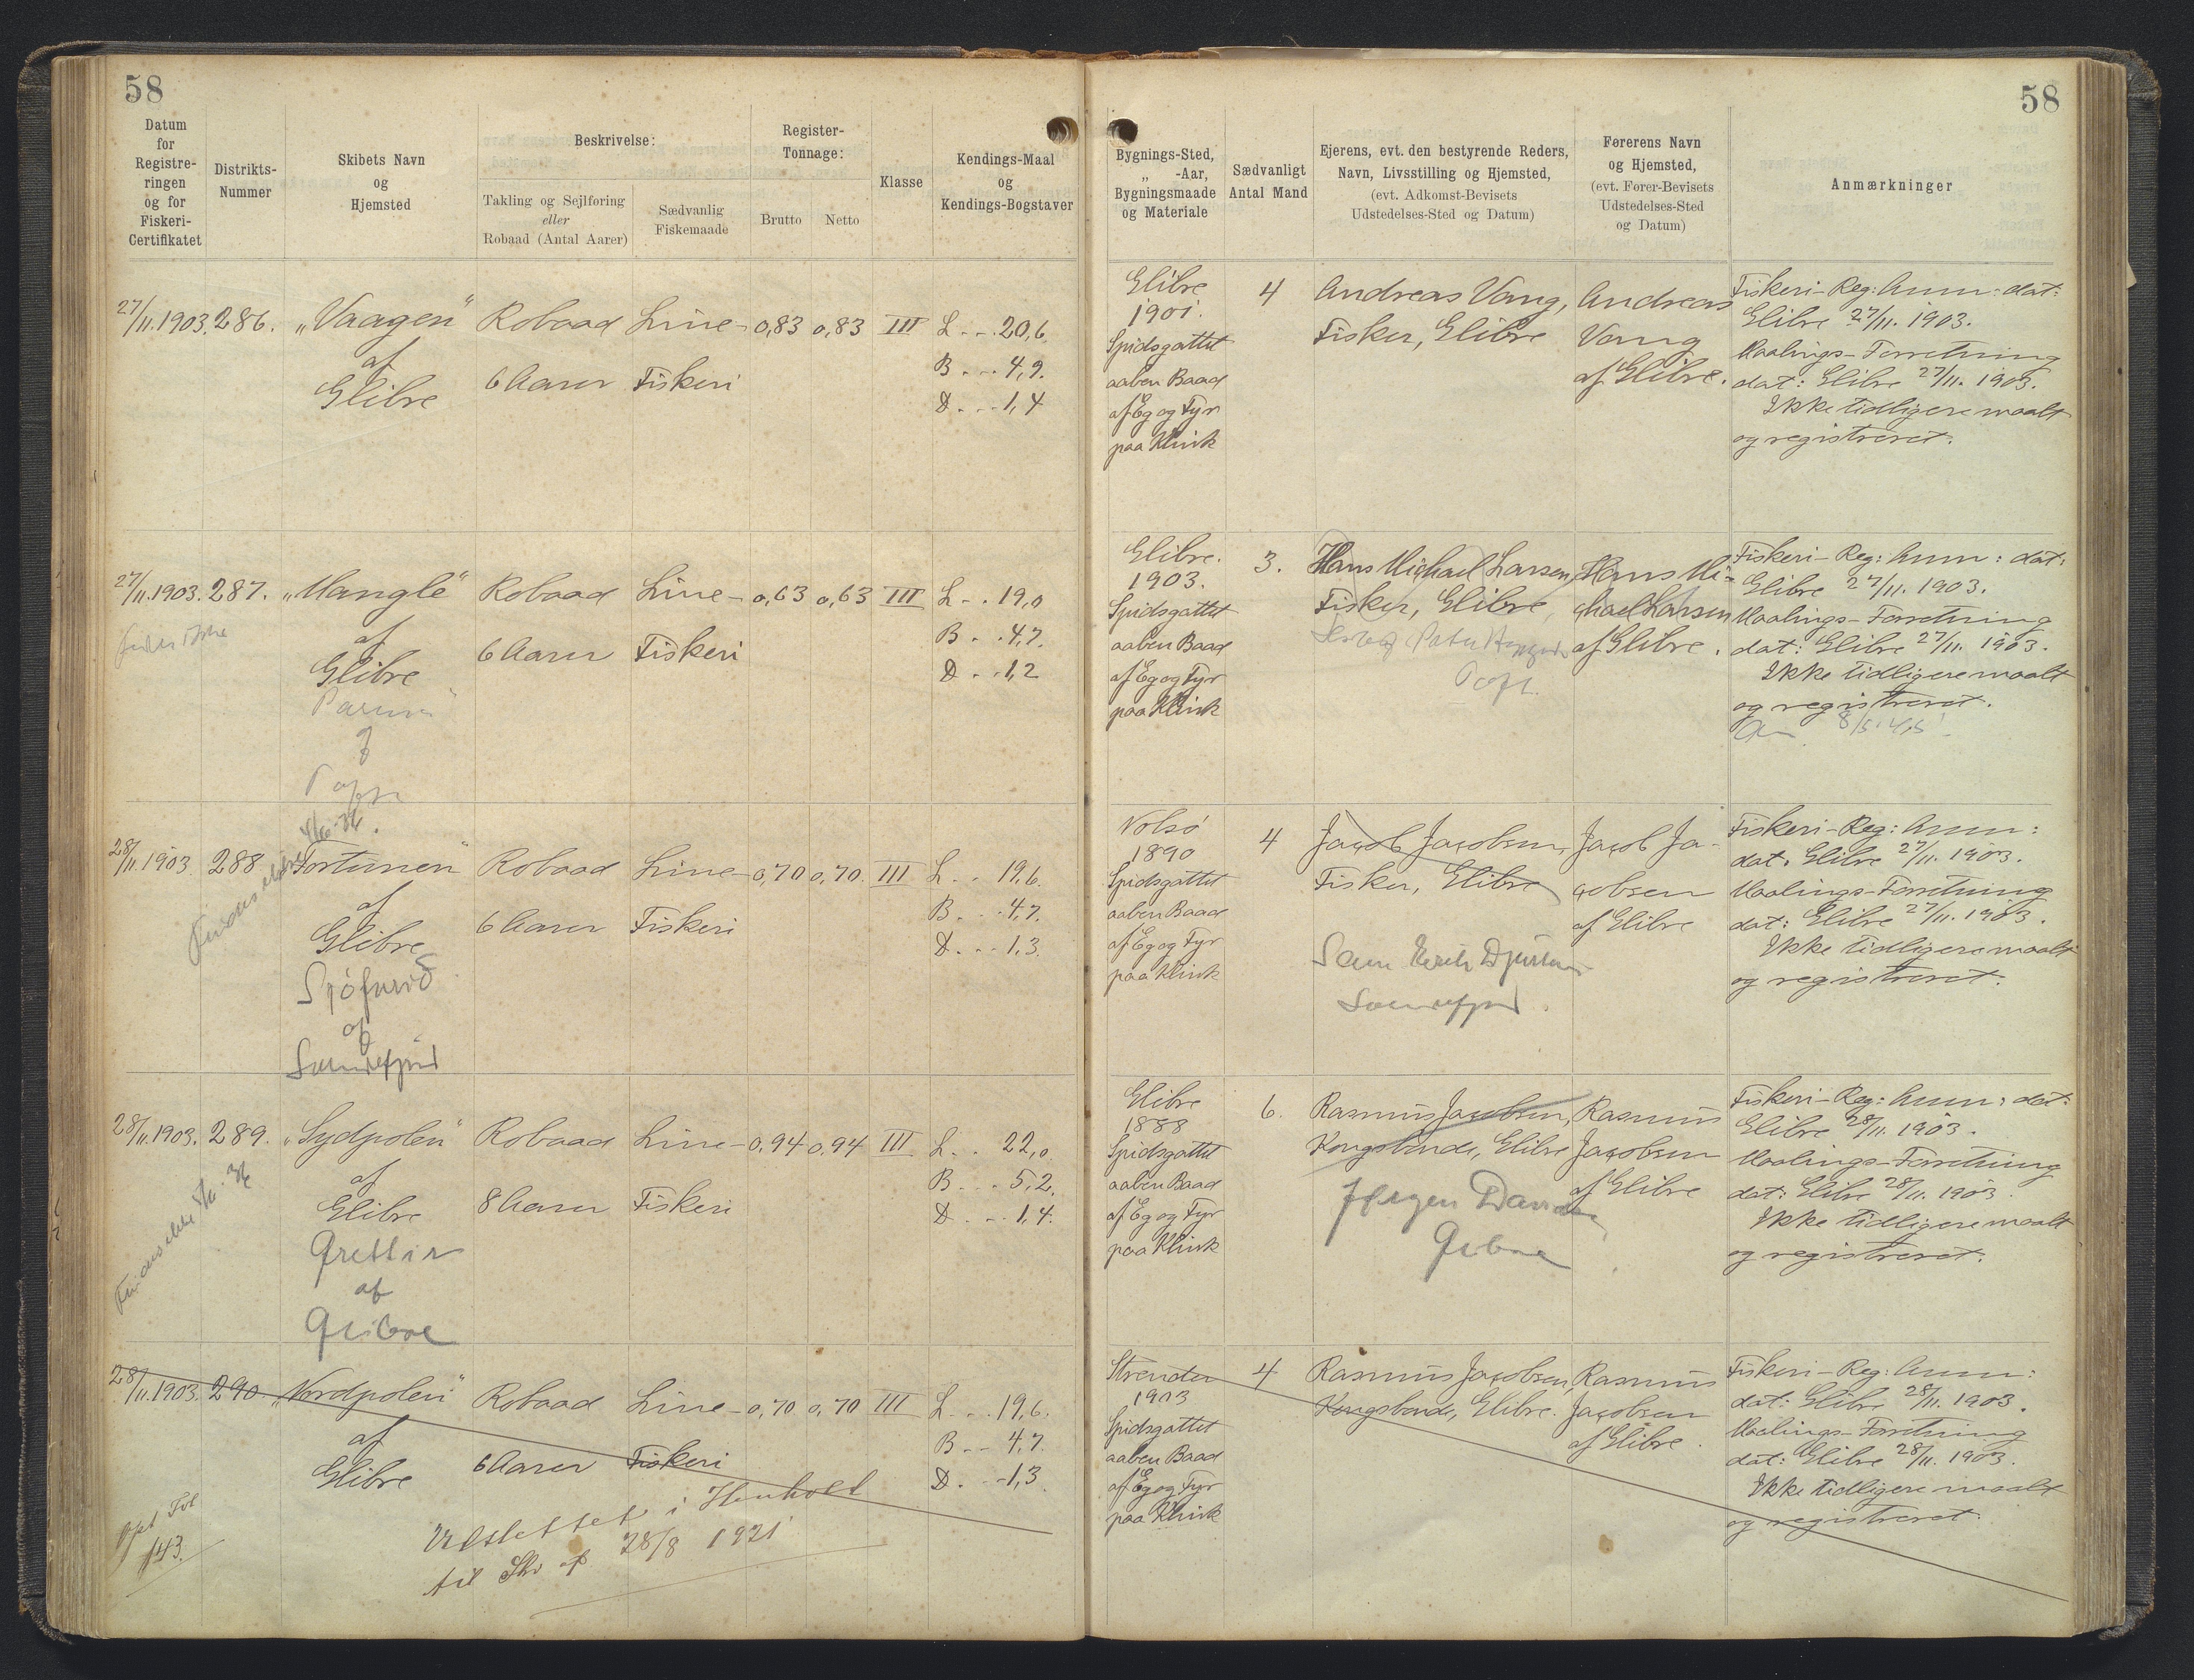 58
58
Datum for Registreringen og for Fiskeri-Certifikatet
Distrikts-Nummer
Skibets Navn og Hjemsted
Beskrivelse:
Takling og Sejlføring eller Robaad (Antal Aarer)
Sædvanlig Fiskemaade
Register-Tonnage:
Brutto
Netto
Klasse
Kendings-Maal og Kendings-Bogstaver
Bygnings-Sted, „ -Aar, Bygningsmaade og Materiale
Sædvanligt Antal Mand
Ejerens, evt. den bestyrende Reders, Navn, Livsstilling og Hjemsted, (evt. Adkomst-Bevisets Udstedelses-Sted og Datum)
Førerens Navn og Hjemsted, (evt. Fører-Bevisets Udstedelses-Sted og Datum)
Anmærkninger
27/11.1903. 286. „Vaagen" Robaad Line- 0,83 0,83 III L. . . 20,6.
af
Glibre 6 Aarer Fiskeri B. . . 4,9.
D. . . 1,4
Glibre 4 Andreas Vang, Andreas Fiskeri-Reg: Anm: dat:
1901. Fisker, Glibre Vang Glibre 27/11. 1903.
Spidsgattet af Glibre. Maalings-Forretning
aaben Baad dat: Glibre 27/11. 1903.
af Eg og Fyr Ikke tidligere maalt
paa Klink og registreret.
27/11.1903. 287. „Mangle" Robaad Line- 0,63 0,63 III L. . . 19,0
af
Glibre 6 Aarer Fiskeri B. . . 4,7.
D. . . 1,2
Glibre. 3. Hans Michael Larsen, Hans Mi- Fiskeri-Reg: Anm: dat:
1903. Fisker, Glibre, chael Larsen Glibre 27/11. 1903.
Spidsgattet af Glibre. Maalings-Forretning
aaben Baad dat: Glibre 27/11. 1903.
af Eg og Fyr Ikke tidligere maalt
paa Klink og registreret.
28/11.1903. 288 „Fortunen" Robaad Line- 0,70 0,70. III L. . . 19,6.
af
Glibre 6 Aarer Fiskeri B. . . 4,7.
D. . . 1,3.
af
Nolsö 4 Jacob Jacobsen, Jacob Ja- Fiskeri-Reg: Anm:
1890 Fisker, Glibre cobsen dat. Glibre 27/11. 1903.
Spidsgattet af Glibre Maalings-Forretning
aaben Baad dat: Glibre 27/11. 1903.
af Eg og Fyr Ikke tidligere maalt
paa Klink og registreret.
28/11.1903. 289. „Sydpolen" Robaad Line- 0,94 0,94 III L. . 22,0.
af
Glibre 8 Aarer Fiskeri B. . . 5,2.
D. . . 1,4.
Grettir
af
Glibre 6. Rasmus Jacobsen, Rasmus Fiskeri-Reg: Anm: dat:
1888 Kongsbonde, Glibre Jacobsen Glibre 28/11. 1903.
Spidsgattet af Glibre Maalings-Forretning
aaben Baad dat: Glibre 28/11. 1903.
af Eg og Fyr Ikke tidligere maalt
paa Klink og registreret.
28/11.1903. 290 „Nordpolen" Robaad Line- 0,70 0,70 III L. . . 19,6.
af
Glibre 6 Aarer Fiskeri B. . . 4,7.
D. . . 1,3
Udslettet i Henhold
til Skr af 28/8 1921
143.
Strender 4 Rasmus Jacobsen, Rasmus Fiskeri-Reg: Anm:
1903 Kongsbonde, Glibre. Jacobsen dat: Glibre 28/11. 1903.
Spidsgattet af Glibre. Maalings-Forretning
aaben Baad dat: Glibre 28/11. 1903.
af Eg og Fyr Ikke tidligere maalt
paa Klink og registreret.